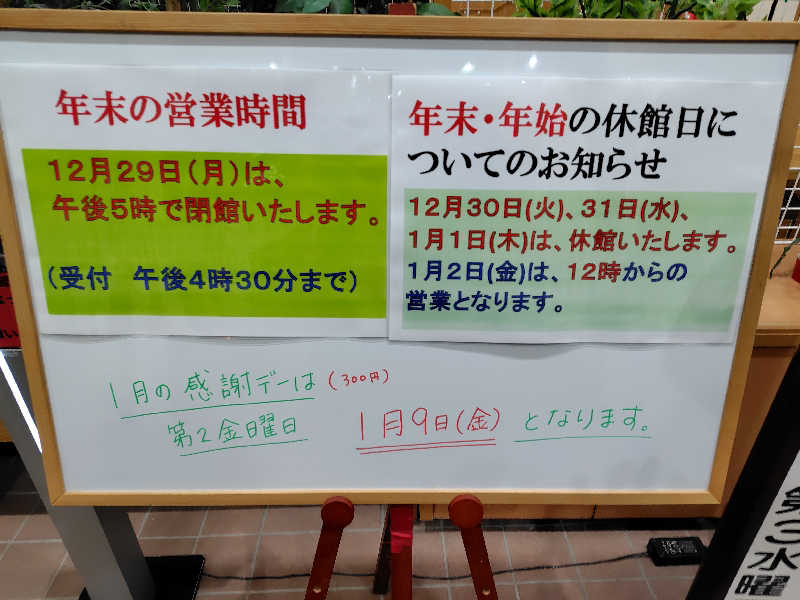 年末の営業時間
12月29日(月)は、
午後5時で閉館いたします。
(受付 午後4時30分まで)
年末・年始の休館日に
ついてのお知らせ
12月30日(火)、31日(水)、
1月1日(木)は、休館いたします。
1月2日(金)は、12時からの
営業となります。
1月の感謝デーは(300円)
第2金曜日 1月9日(金)となります。
第3水曜